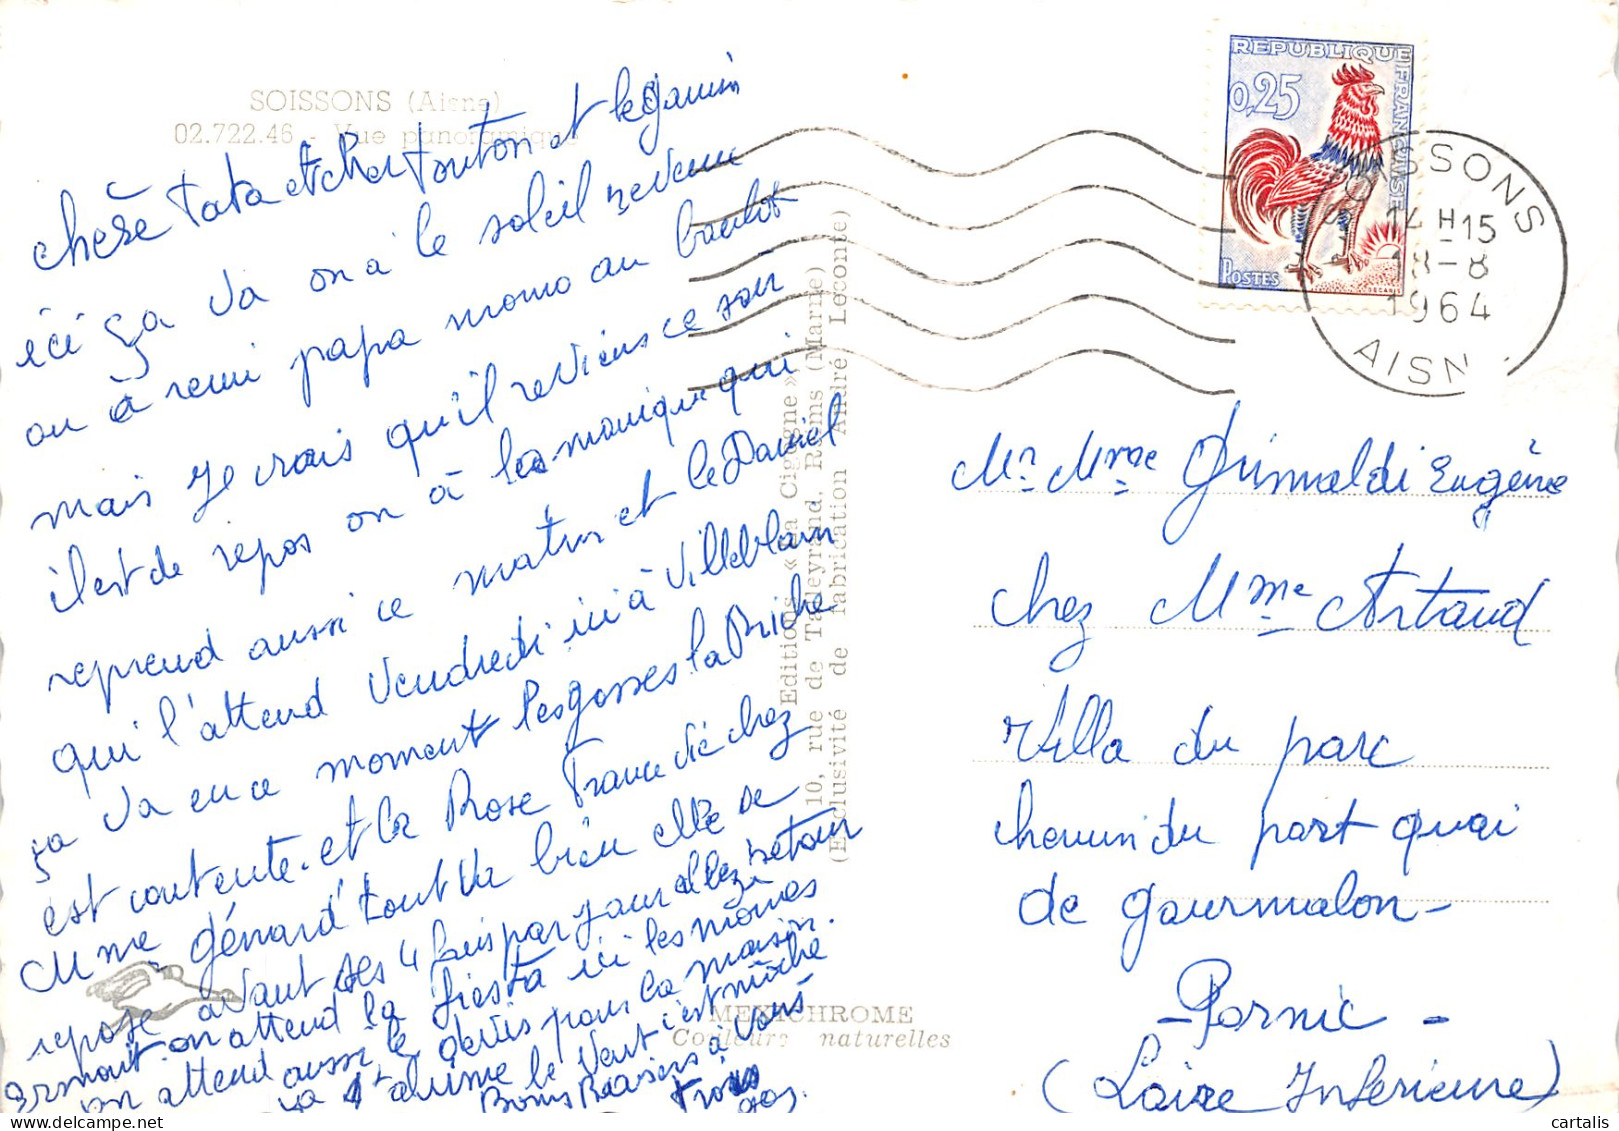 SOISSONS (Aisne)
02.722.46 - Vue panoramique
chère Tata et cher tonton et le gamin
ici ça va on à le soleil revenu
on à remi papa momo au boulot
mais je vrais qu'il reviens ce soir
il est de repos on à la manique qui
reprend aussi ce matin et le Daniel
qui l'attend Vendredi ici à Villeblain
ça va en ce moment les gosses la Briche
est contente. et la Rose France Vie chez
Mme génard tout va bien elle se
repose avant ses 4 fois par jour allez retour
Ermont. on attend la fiesta ici les mômes
on attend aussi le devis pour la maison.
le Vent c'est moche
Bons Baisers à Vous
Trois
gos.
Editions « La Cigogne »
10, rue de Talleyrand, Reims (Marne)
(Exclusivité de fabrication André Leconte)
MEXICHROME
Couleurs naturelles
REPUBLIQUE FRANÇAISE
0,25
POSTES
DECARIS
SOISSONS
14H15
18-8
1964
AISN
Mr Mme Grimaldi Eugène
chez Mme Artaud
Villa du parc
chemin du port quai
de gourmalon -
- Pornic -
(Loire Inferieure)